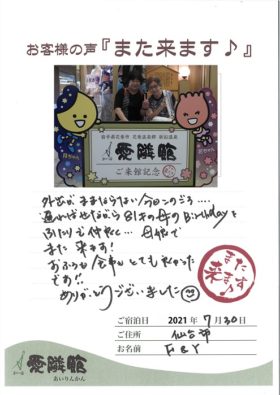 お客様の声『また来ます♪』
岩手県花巻市 花巻温泉郷 新鉛温泉
愛隣館
ご来館記念
外出がままならない今日このごろ....
遅ればせながら81才の母のBirthdayを
ふたりで仲良く… 母娘で
また来ます!
おふろも食事もとてもよかった
です!!
ありがとうございました
また
来ます♪
ご宿泊日 2021年 7月30日
ご住所 仙台市
お名前 F&Y
愛隣館
あいりんかん